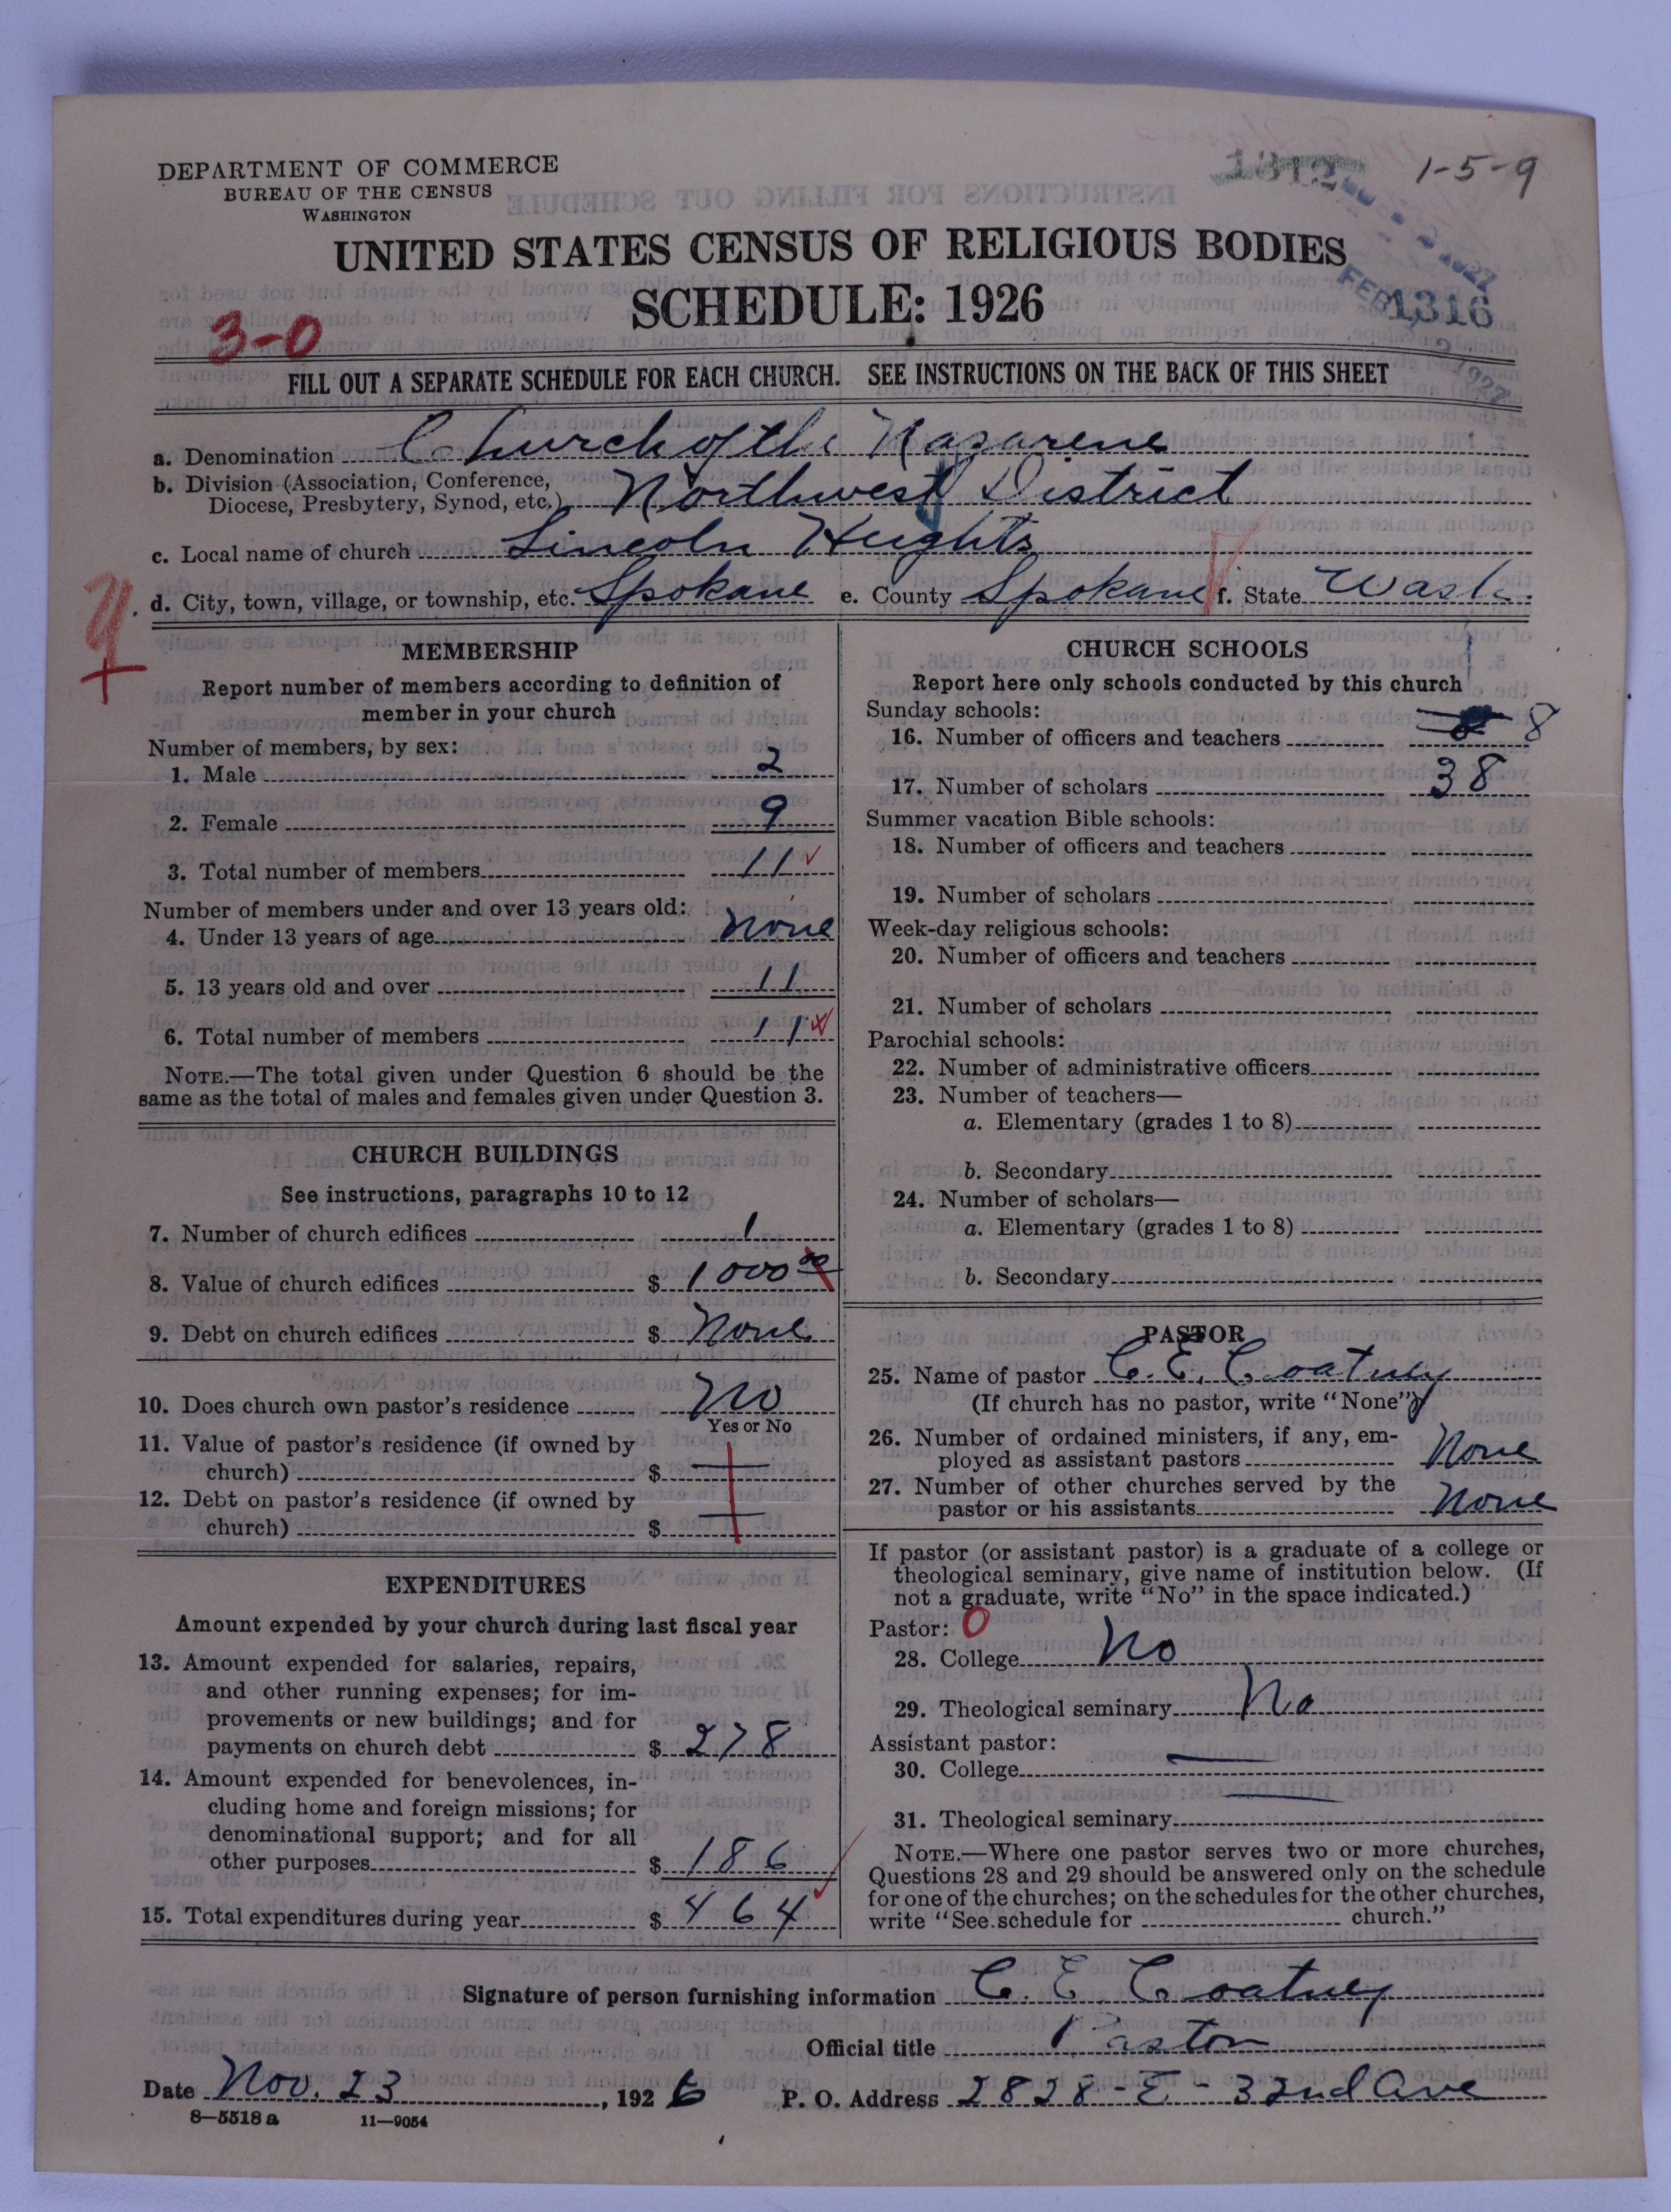 DEPARTMENT OF COMMERCE
BUREAU OF THE CENSUS
WASHINGTON
1312
1-5-9
UNITED STATES CENSUS OF RELIGIOUS BODIES
SCHEDULE: 1926
1316
FEB 2 1927
3-0
FILL OUT A SEPARATE SCHEDULE FOR EACH CHURCH. SEE INSTRUCTIONS ON THE BACK OF THIS SHEET
a. Denomination Church of the Nazarene
b. Division (Association, Conference,
Diocese, Presbytery, Synod, etc.) Northwest District
c. Local name of church Lincoln Heights
d. City, town, village, or township, etc. Spokane e. County Spokane f. State Wash.
MEMBERSHIP
Report number of members according to definition of
member in your church
Number of members, by sex:
1. Male 2
2. Female 9
3. Total number of members 11
Number of members under and over 13 years old:
4. Under 13 years of age None
5. 13 years old and over 11
6. Total number of members 11
NOTE.—The total given under Question 6 should be the
same as the total of males and females given under Question 3.
CHURCH BUILDINGS
See instructions, paragraphs 10 to 12
7. Number of church edifices 1
8. Value of church edifices $ 1000 00
9. Debt on church edifices $ None
10. Does church own pastor's residence No
Yes or No
11. Value of pastor's residence (if owned by
church) $
12. Debt on pastor's residence (if owned by
church) $
EXPENDITURES
Amount expended by your church during last fiscal year
13. Amount expended for salaries, repairs,
and other running expenses; for im-
provements or new buildings; and for
payments on church debt $ 278
14. Amount expended for benevolences, in-
cluding home and foreign missions; for
denominational support; and for all
other purposes $ 186
15. Total expenditures during year $ 464
CHURCH SCHOOLS
Report here only schools conducted by this church
Sunday schools:
16. Number of officers and teachers 8
17. Number of scholars 38
Summer vacation Bible schools:
18. Number of officers and teachers
19. Number of scholars
Week-day religious schools:
20. Number of officers and teachers
21. Number of scholars
Parochial schools:
22. Number of administrative officers
23. Number of teachers—
a. Elementary (grades 1 to 8)
b. Secondary
24. Number of scholars—
a. Elementary (grades 1 to 8)
b. Secondary
PASTOR
25. Name of pastor C. E. Coatney
(If church has no pastor, write "None")
26. Number of ordained ministers, if any, em-
ployed as assistant pastors None
27. Number of other churches served by the
pastor or his assistants None
If pastor (or assistant pastor) is a graduate of a college or
theological seminary, give name of institution below. (If
not a graduate, write "No" in the space indicated.)
Pastor: 0
28. College No
29. Theological seminary No
Assistant pastor:
30. College
31. Theological seminary
NOTE.—Where one pastor serves two or more churches,
Questions 28 and 29 should be answered only on the schedule
for one of the churches; on the schedules for the other churches,
write "See schedule for church."
Signature of person furnishing information C. E. Coatney
Official title Pastor
Date Nov. 23, 1926 P. O. Address 2828-E-32nd Ave
8—5518a 11—9054